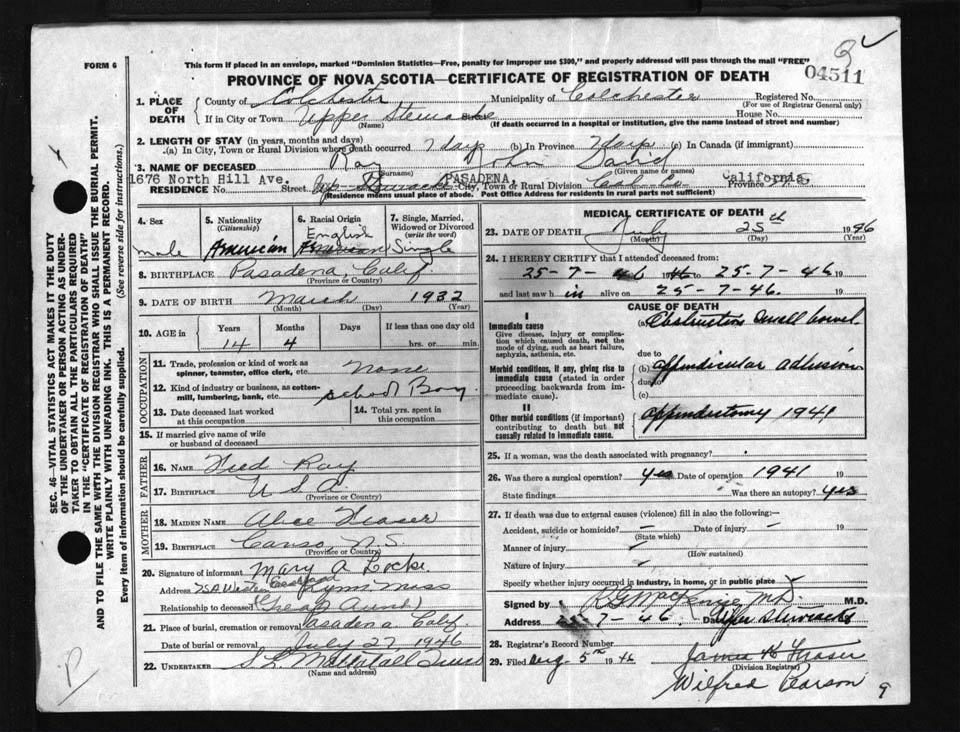 FORM 6
This form if placed in an envelope, marked "Dominion Statistics—Free, penalty for improper use $300," and properly addressed will pass through the mail "FREE"
04511
PROVINCE OF NOVA SCOTIA—CERTIFICATE OF REGISTRATION OF DEATH
1. PLACE OF DEATH County of Colchester Municipality of Colchester Registered No.
(For use of Registrar General only)
If in City or Town Upper Stewiacke House No.
(Name) (If death occurred in a hospital or institution, give the name instead of street and number)
2. LENGTH OF STAY (in years, months and days)
(a) In City, Town or Rural Division where death occurred 7 days (b) In Province 7 days (c) In Canada (if immigrant)
3. NAME OF DECEASED Ray John David
(Surname) (Given name or names)
1676 North Hill Ave. PASADENA, California
RESIDENCE No. Street City, Town or Rural Division Province
(Residence means usual place of abode. Post Office Address for residents in rural parts not sufficient)
4. Sex male
5. Nationality (Citizenship) American
6. Racial Origin English American
7. Single, Married, Widowed or Divorced (write the word) Single
8. BIRTHPLACE Pasadena, Calif
(Province or Country)
9. DATE OF BIRTH March 1932
(Month) (Day) (Year)
10. AGE in Years Months Days If less than one day old
14 4 hrs. or min.
OCCUPATION
11. Trade, profession or kind of work as spinner, teamster, office clerk, etc. none
12. Kind of industry or business, as cotton-mill, lumbering, bank, etc. school Boy
13. Date deceased last worked at this occupation
14. Total yrs. spent in this occupation
15. If married give name of wife or husband of deceased
FATHER
16. NAME Fred Ray
17. BIRTHPLACE U S A
(Province or Country)
MOTHER
18. MAIDEN NAME Alice Fraser
19. BIRTHPLACE Canso, N.S.
(Province or Country)
20. Signature of informant Mary A Locke
Address Lynn Mass
Relationship to deceased (Great Aunt)
21. Place of burial, cremation or removal Pasadena, Calif.
Date of burial or removal July 27, 1946
22. UNDERTAKER
(Name and address)
MEDICAL CERTIFICATE OF DEATH
23. DATE OF DEATH July 25th 1946
(Month) (Day) (Year)
24. I HEREBY CERTIFY that I attended deceased from:
25-7-46 19 to 25-7-46 19
and last saw h im alive on 25-7-46. 19
CAUSE OF DEATH
I
Immediate cause
Give disease, injury or complication which caused death, not the mode of dying, such as heart failure, asphyxia, asthenia, etc.
(a) Obstruction small bowel
due to
Morbid conditions, if any, giving rise to immediate cause (stated in order proceeding backwards from immediate cause).
(b) appendicular adhesion
due to
(c)
II
Other morbid conditions (if important) contributing to death but not causally related to immediate cause.
appendectomy 1941
25. If a woman, was the death associated with pregnancy?
26. Was there a surgical operation? yes Date of operation 1941 19
State findings Was there an autopsy? yes
27. If death was due to external causes (violence) fill in also the following:—
Accident, suicide or homicide? — Date of injury — 19
(State which)
Manner of injury
(How sustained)
Nature of injury
Specify whether injury occurred in industry, in home, or in public place
Signed by M.D. M.D.
Address 25-7-46. Date Upper Stewiacke
28. Registrar's Record Number
29. Filed Aug. 5th 1946 James H Fraser
(Division Registrar)
Wilfred Pearson
9
P
SEC. 46—VITAL STATISTICS ACT MAKES IT THE DUTY
OF THE UNDERTAKER OR PERSON ACTING AS UNDER-
TAKER TO OBTAIN ALL THE PARTICULARS REQUIRED
IN THE "CERTIFICATE OF REGISTRATION OF DEATH"
AND TO FILE THE SAME WITH THE DIVISION REGISTRAR WHO SHALL ISSUE THE BURIAL PERMIT.
WRITE PLAINLY WITH UNFADING INK. THIS IS A PERMANENT RECORD.
Every item of information should be carefully supplied. (See reverse side for instructions.)